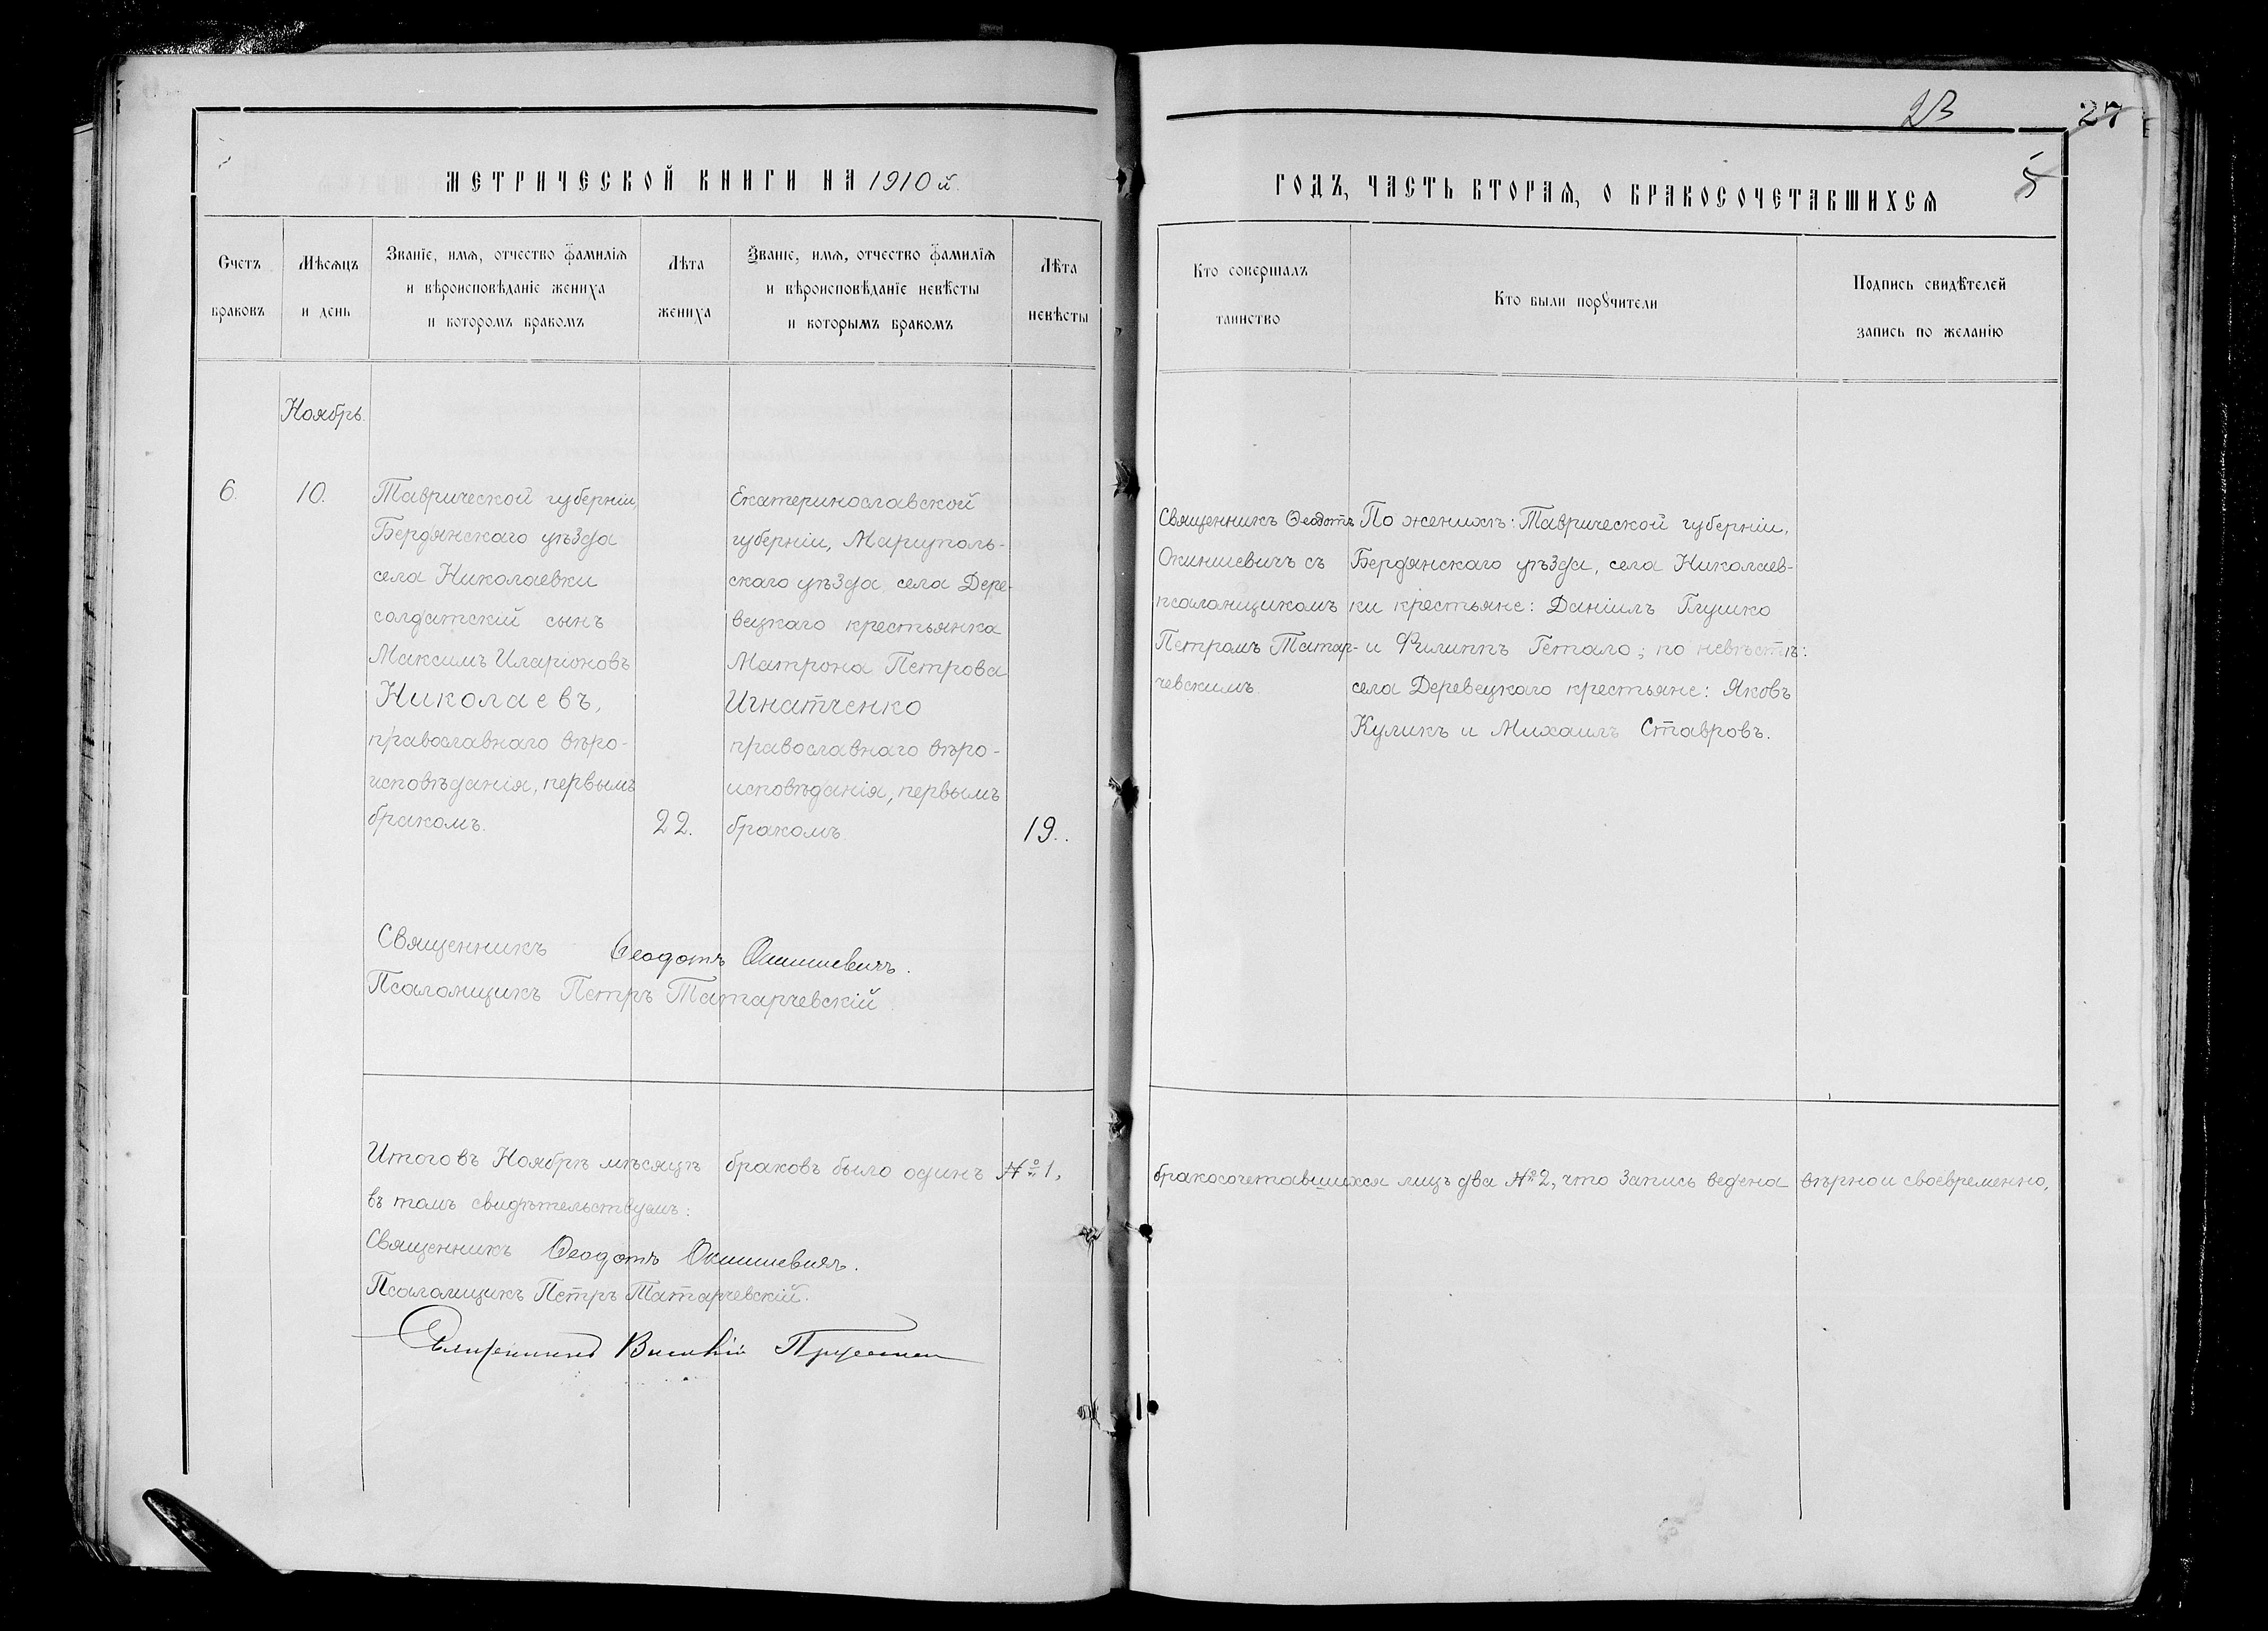 23
27
5
МЕТРИЧЕСКОЙ КНИГИ НА 1910й
ГОДЪ, ЧАСТЬ ВТОРАЯ, О БРАКОСОЧЕТАВШИХСЯ
Счетъ
браковъ
Мѣсяцъ
и день
Званіе, имя, отчество фамилія
и вѣроисповѣданіе жениха
и которомъ бракомъ
Лѣта
жениха
Званіе, имя, отчество фамилія
и вѣроисповѣданіе невѣсты
и которымъ бракомъ
Лѣта
невѣсты
Кто совершалъ
таинство
Кто были порꙋчители
Подпись свидѣтелей
запись по желанію
Ноябрь.
6.
10.
Таврической губерніи,
Бердянскаго уѣзда
села Николаевки
солдатскій сынъ
Максимъ Иларіоновъ
Николаевъ,
православнаго вѣро-
исповѣданія, первымъ
бракомъ.
22.
Екатеринославской
губерніи, Маріуполь-
скаго уѣзда, села Дере-
вецкаго крестьянка
Матрона Петрова
Игнатченко
православнаго вѣро-
исповѣданія, первымъ
бракомъ
19.
Священникъ Ѳеодотъ
Окиншевичъ съ
псаломщикомъ
Петромъ Татар-
чевскимъ.
По женихѣ: Таврической губерніи,
Бердянскаго уѣзда, села Николаев-
ки крестьяне: Даніилъ Глушко
и Филиппъ Гетало; по невѣстѣ:
села Деревецкаго крестьяне: Яковъ
Куликъ и Михаилъ Ставровъ.
Священникъ Ѳеодотъ Окиншевичъ.
Псаломщикъ Петръ Татарчевскій
Итого въ Ноябрѣ мѣсяцѣ браковъ было одинъ № 1, бракосочетавшихся лицъ два № 2, что запись ведена вѣрно и своевременно,
въ томъ свидѣтельствуемъ:
Священникъ Ѳеодотъ Окиншевичъ.
Псаломщикъ Петръ Татарчевскій.
Священникъ